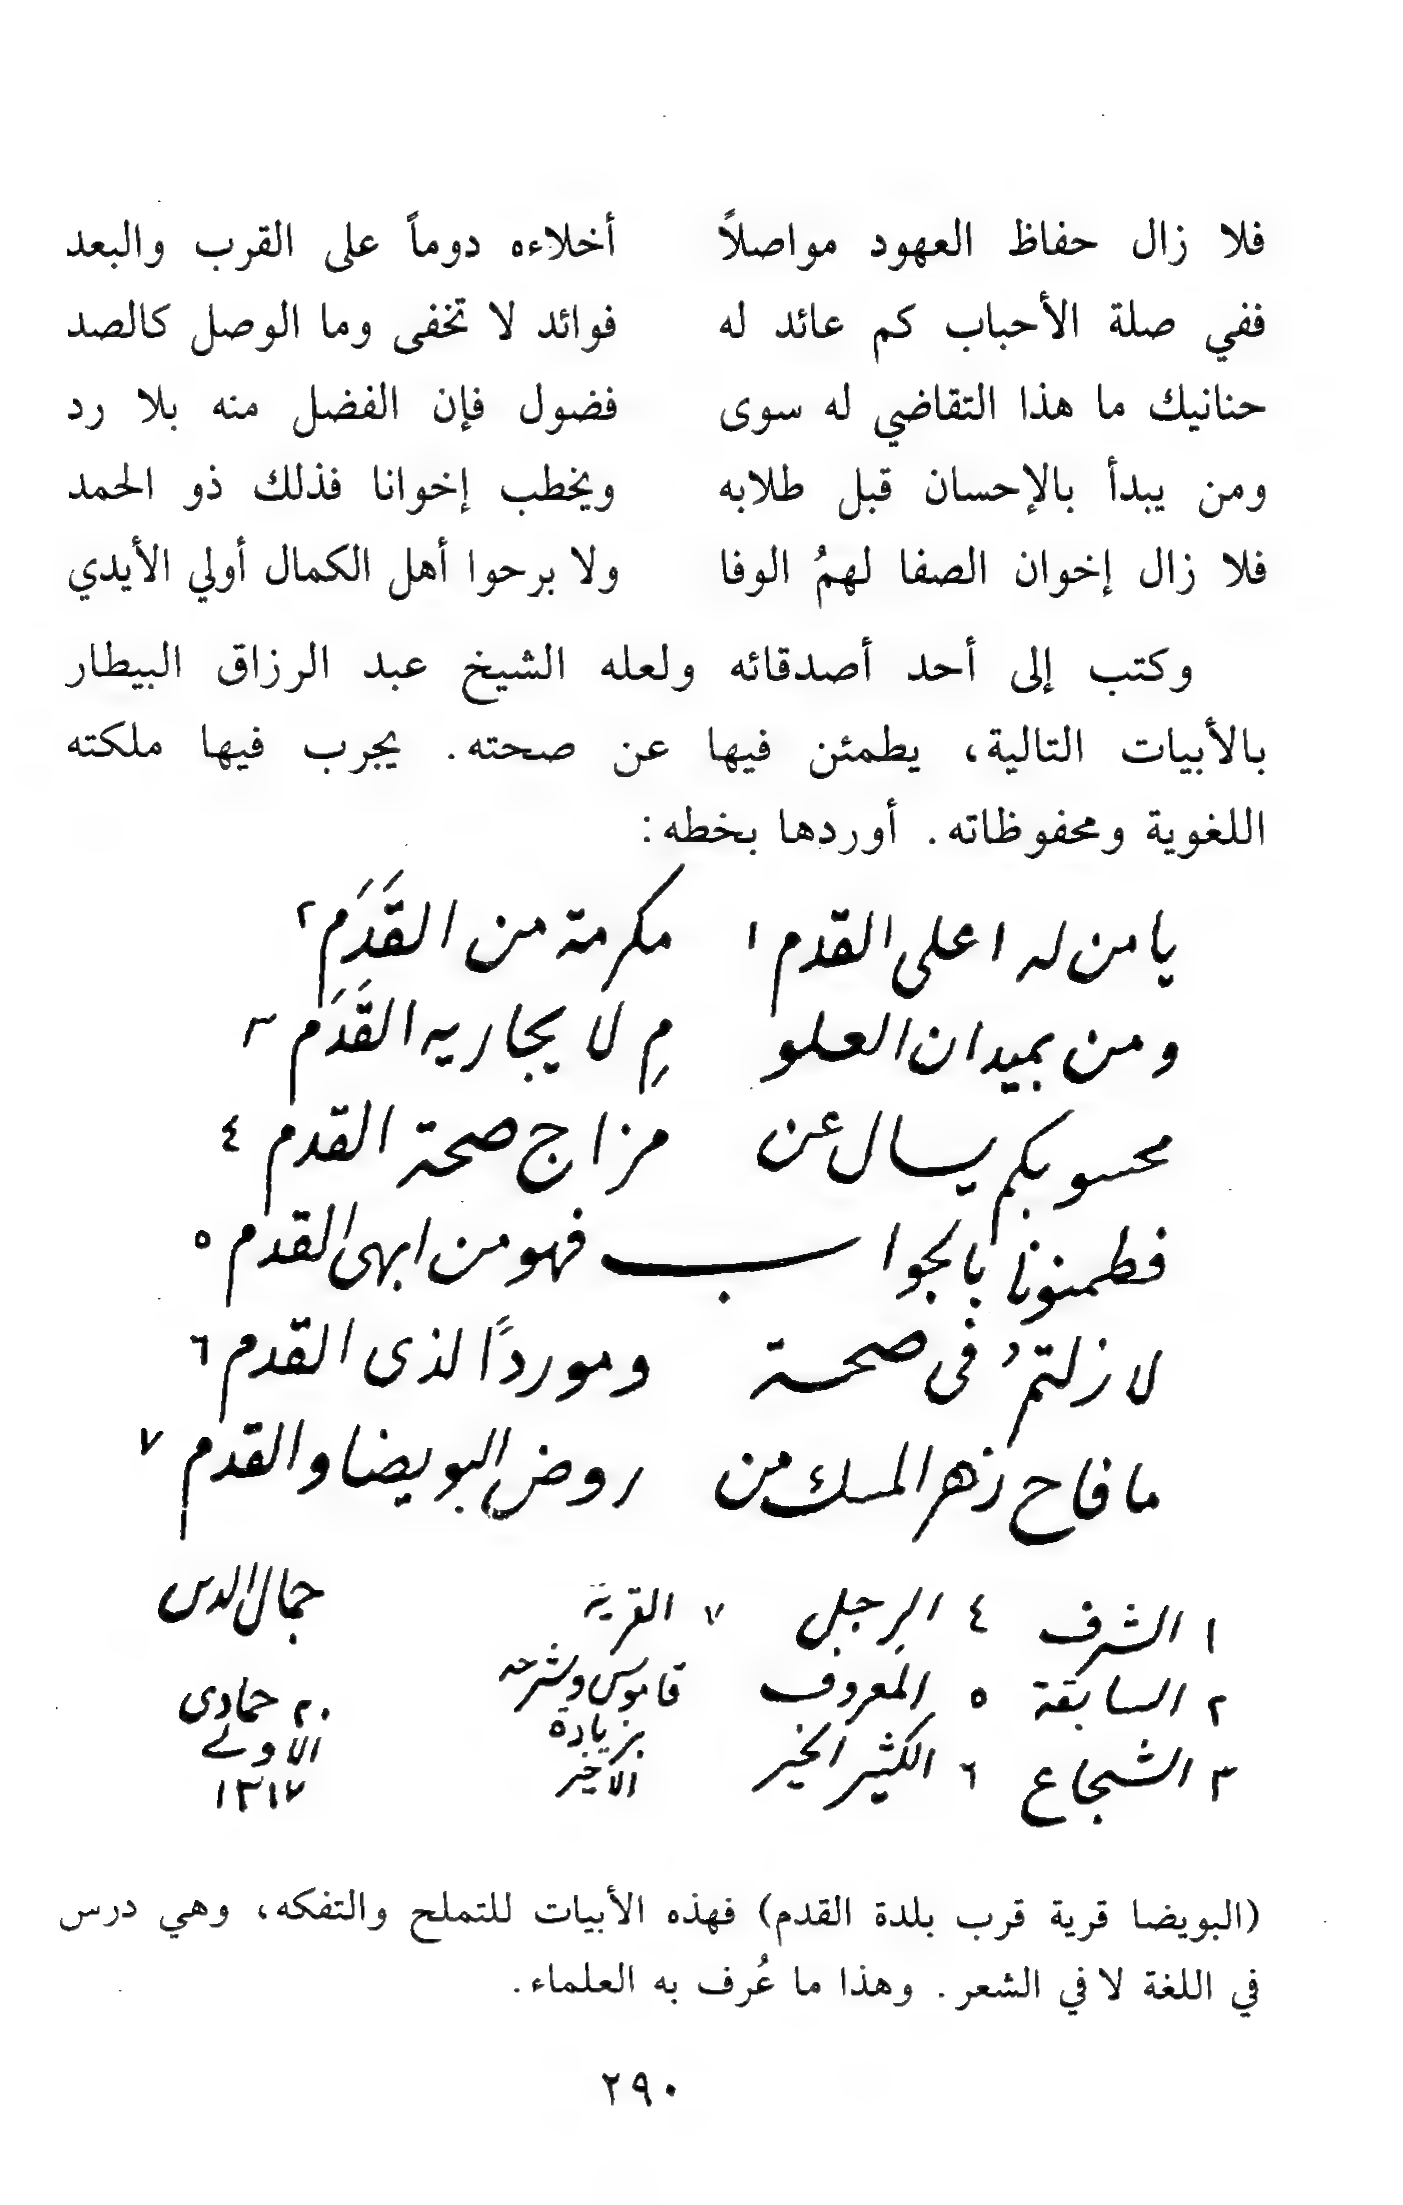 فلا زال حفاظ العهود مواصلاً أخلاءه دوماً على القرب والبعد
ففي صلة الأحباب كم عائد له فوائد لا تخفى وما الوصل كالصد
حنانيك ما هذا التقاضي له سوى فضول فإن الفضل منه بلا رد
ومن يبدأ بالإحسان قبل طلابه ويخطب إخوانا فذلك ذو الحمد
فلا زال إخوان الصفا لهمُ الوفا ولا برحوا أهل الكمال أولي الأيدي
وكتب إلى أحد أصدقائه ولعله الشيخ عبد الرزاق البيطار
بالأبيات التالية، يطمئن فيها عن صحته. يجرب فيها ملكته
اللغوية ومحفوظاته. أوردها بخطه:
يا من له اعلى القدم ١ مكرمة من القَدَم ٢
ومن بميدان العلو مِ لا يجاريه القَدَم ٣
محسوبكم يسال عن مزاج صحة القدم ٤
فطمنونا بالجواب فهو من ابهى القدم ٥
لا زلتمُ في صحة وموردًا لذى القدم ٦
ما فاح زهر المسك من روض البويضا والقدم ٧
١ الشرف ٤ الرجل ٧ القرية جمال الدين
٢ السابقة ٥ المعروف قاموس وشرحه ٢٠ جمادى
٣ الشجاع ٦ الكثير الخير بزيادة الاولى
الاخير ١٣١٧
(البويضا قرية قرب بلدة القدم) فهذه الأبيات للتملح والتفكه، وهي درس
في اللغة لا في الشعر. وهذا ما عُرف به العلماء.
٢٩٠